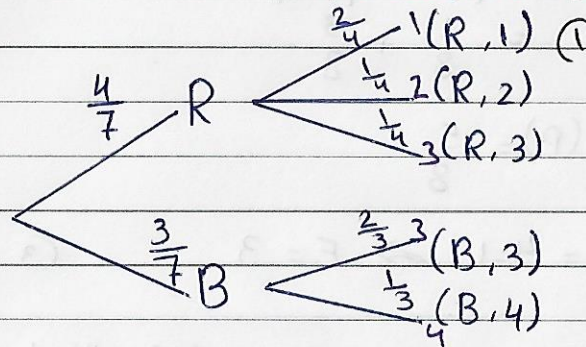 2/4 1 (R, 1) (1
4/7 R 1/4 2 (R, 2)
1/4 3 (R, 3)
3/7 B 2/3 3 (B, 3)
1/3 4 (B, 4)